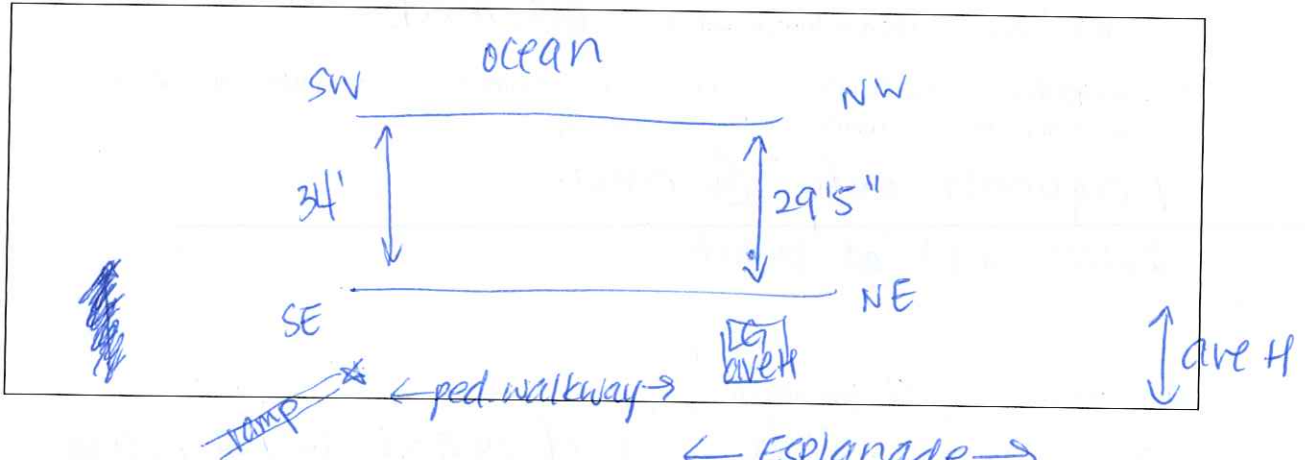 ocean
SW
NW
34'
29'5"
SE
NE
LG
aveH
ave H
ramp
←ped.walkway→
← Esplanade →